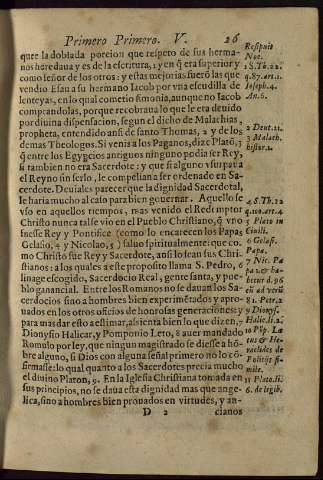 Primero Primero. V. 26
qure la doblada porcion que respeto de sus herma-
nos heredaua y es de la escritura, 1 y en q̃ era superior y
como señor de los otros: y estas mejorias fuerõ las que
vendio Esau a su hermano Iacob por vna escudilla de
lenteyas, en lo qual cometio simonia, aunque no Iacob
comprandolas, porque recobraua lo que le era deuido
por diuina dispensacion, segun el dicho de Malachias,
propheta, entendido ansi de santo Thomas, 2 y de los de
mas Theologos. Si venis a los Paganos, dize Platõ, 3
q̃ entre los Egypcios antiguos ninguno podia ser Rey,
si tambien no era Sacerdote: y que si alguno vsurpaua
el Reyno sin serlo, le compelian a ser ordenado en Sa-
cerdote. Deuiales parecer que la dignidad Sacerdotal,
le haria mucho al caso para bien gouernar. Aquesto se
vso en aquellos tiempos, mas venido el Redemptor
Christo nunca tal se vio en el Pueblo Christiano, q̃ vno
fuesse Rey y Pontifice (como lo encarecen los Papas
Gelasio, 4 y Nicolao, 5) saluo spiritualmente: que co-
mo Christo fue Rey y Sacerdote, ansi lo sean sus Chri-
stianos: a los quales a este proposito llama S. Pedro, 6
linage escogido, Sacerdocio Real, gente santa, y pue-
blo ganancial. Entre los Romanos no se dauan los Sa-
cerdocios sino a hombres bien experimẽtados y apro-
uados en los otros officios de honrosas generaciones: y
para mas dar esto a estimar, assienta bien lo que dizen, 7
Dionysio Halicar, y Pomponio Leto, 8 auer mandado
Romulo por ley, que ningun magistrado se diesse a hõ-
bre alguno, si Dios con alguna señal primero no lo cõ-
firmasse: lo qual quanto a los Sacerdotes precia mucho
el diuino Platon, 9. En la Iglesia Christiana tomada en
sus principios, no se daua esta dignidad mas que ange-
lica, sino a hombres bien prouados en virtudes, y an-
D 2 cianos
Respuit
Not.
1 S. Th. 22.
q. 87. art. 1.
Ioseph. 4.
An. 6.
2 Deut. 21.
3 Malath.
4 S. Th. 22
q. 100. art. 4.
5 Plato in
Ciuili.
6 Gelasi.
Papa.
7 Nic. Pa
pa & ha-
betur d. 96
8 1. Petr. 2
9 Dionys.
Halic. li. 2.
10 Põp. Læ
tus & He-
raclides de
Politijs si-
mile.
11 Plato. li.
6. de legib.